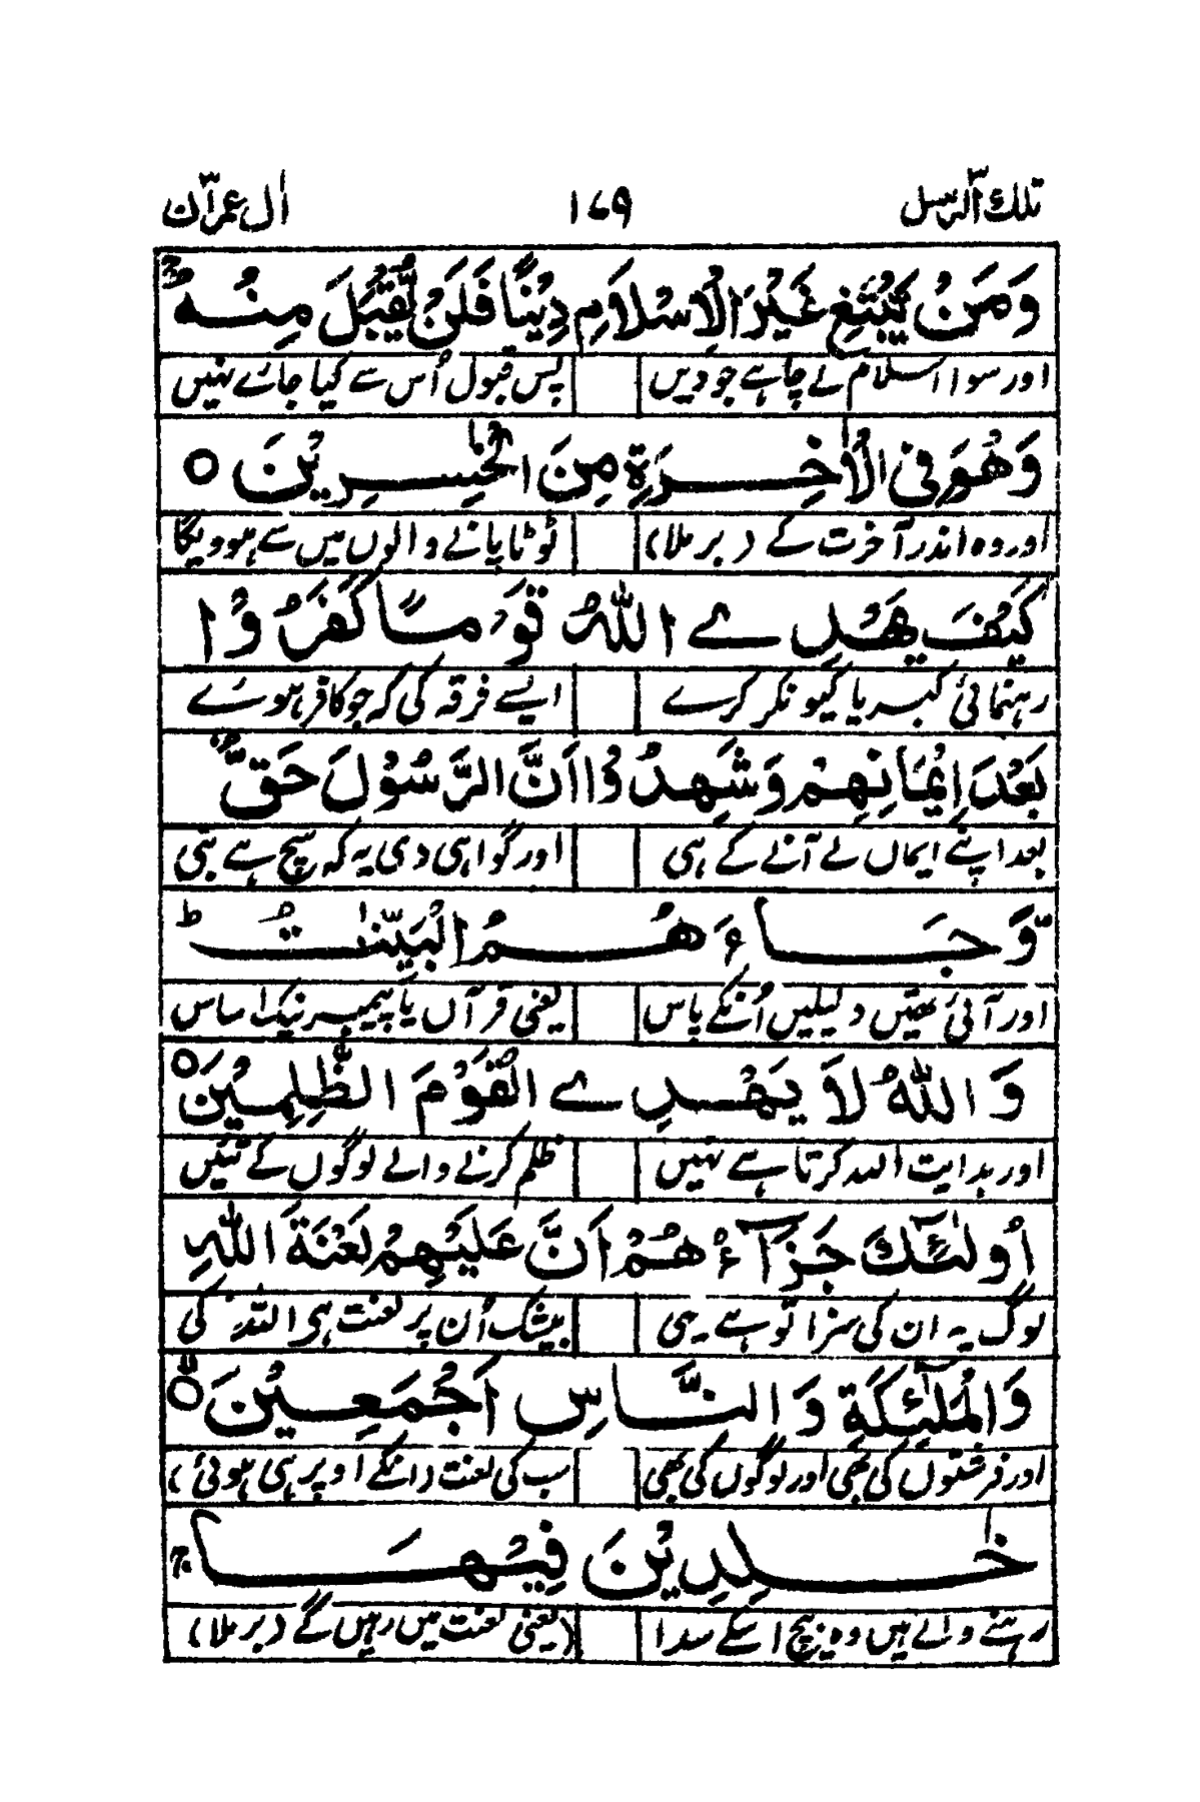 تلك الرسل ۱۷۹ اٰل عمرٰن
وَمَنْ يَّبْتَغِ غَيْرَ الْاِسْلَامِ دِيْنًا فَلَنْ يُّقْبَلَ مِنْهُ ۚ
اور سوا اسلام لے چاہے جو دیں پس قبول اُس سے کیا جائے نہیں
وَهُوَ فِى الْاٰخِرَةِ مِنَ الْخٰسِرِيْنَ ○
اور وہ اندر آخرت کے (برملا) ٹوٹا پانے والوں میں سے ہوویگا
كَيْفَ يَهْدِے اللّٰهُ قَوْمًا كَفَرُوْا
رہنمائی کبریا کیونکر کرے ایسے فرقہ کی کہ جو کافر ہوئے
بَعْدَ اِيْمَانِهِمْ وَشَهِدُوْا اَنَّ الرَّسُوْلَ حَقٌّ
بعد اپنے ایماں لے آنے کے ہی اور گواہی دی یہ کہ سچ ہے نبی
وَّجَاءَهُمُ الْبَيِّنٰتُ ؕ
اور آئی تھیں دلیلیں اُنکے پاس یعنی قرآں یا پیمبر نیک اساس
وَاللّٰهُ لَا يَهْدِے الْقَوْمَ الظّٰلِمِيْنَ ○
اور ہدایت اللہ کرتا ہے نہیں ظلم کرنے والے لوگوں کے تئیں
اُولٰٓئِكَ جَزَآءُهُمْ اَنَّ عَلَيْهِمْ لَعْنَةَ اللّٰهِ
لوگ یہ ان کی سزا تو ہے یہی بیشک اُن پر لعنت ہی اللہ کی
وَالْمَلٰٓئِكَةِ وَالنَّاسِ اَجْمَعِيْنَ ○
اور فرشتوں کی بھی اور لوگوں کی بھی سب کی لعنت (انکے اوپر ہی ہوئی)
خٰلِدِيْنَ فِيْهَا ۚ
رہنے والے ہیں وہ بیچ اسکے سدا (یعنی لعنت میں رہیں گے (برملا)